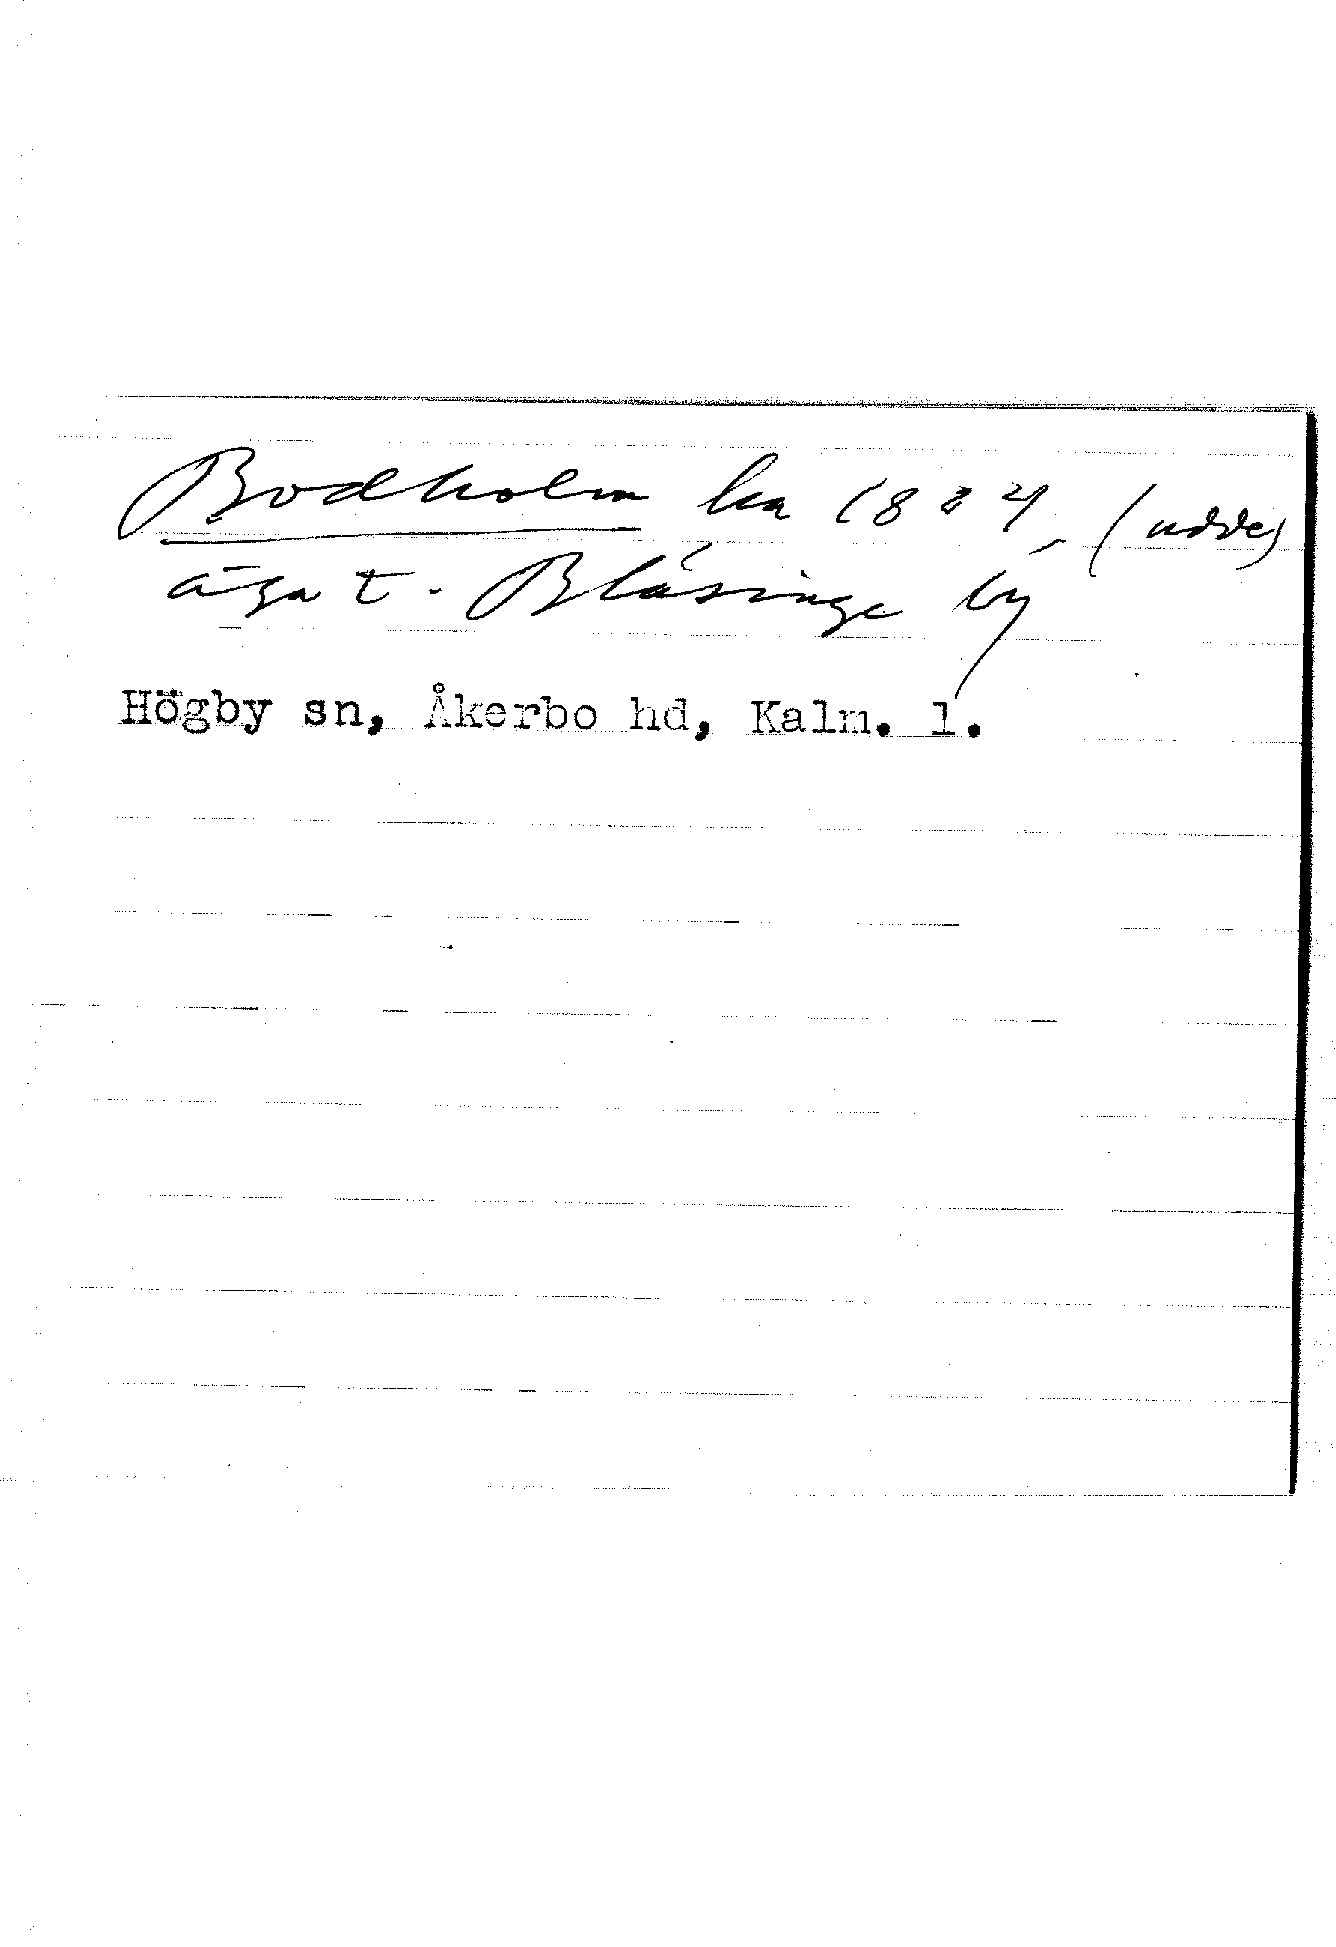 Bodholm ka 1824 (udde)
äga t. Blåsinge by
Högby sn, Åkerbo hd, Kalm. l.